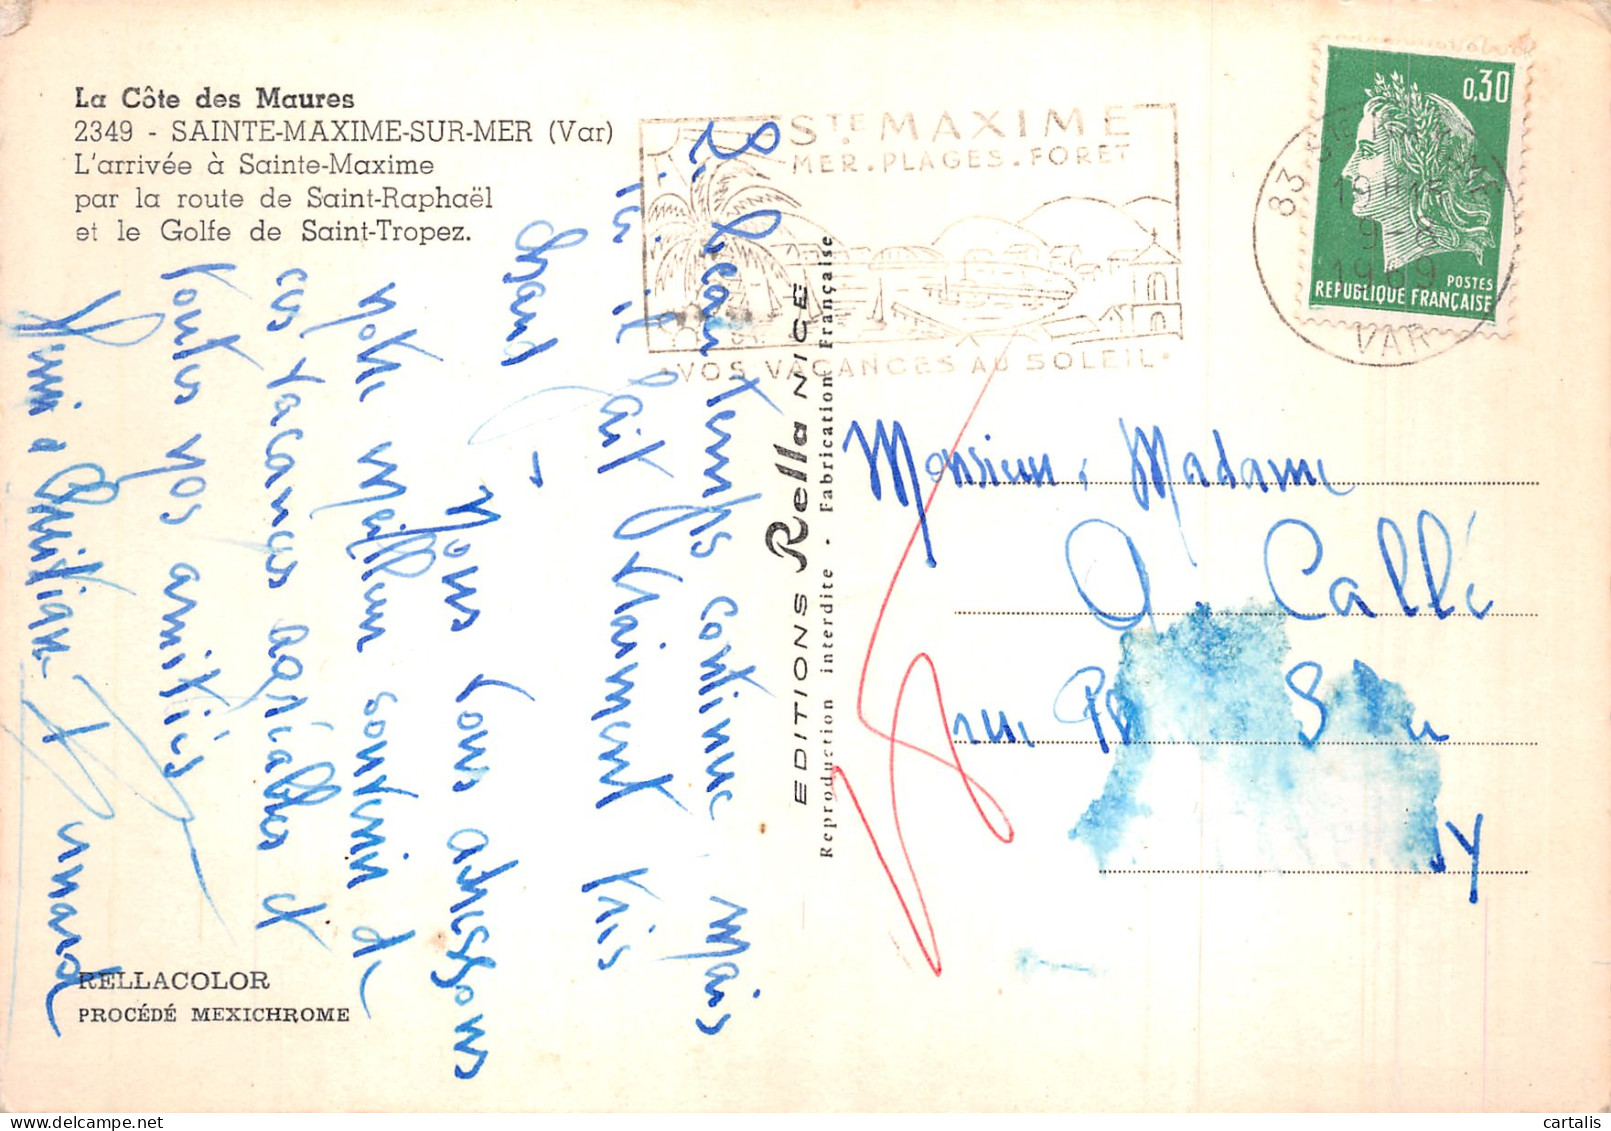 La Côte des Maures
2349 - SAINTE-MAXIME-SUR-MER (Var)
L'arrivée à Sainte-Maxime
par la route de Saint-Raphaël
et le Golfe de Saint-Tropez.
STE MAXIME
MER.PLAGES.FORET
VOS VACANCES AU SOLEIL
83
19
1969
VAR
0,30
POSTES
REPUBLIQUE FRANÇAISE
Le beau temps continue mais
il fait vraiment très
chaud
Nous vous adressons
notre meilleur souvenir de
ces vacances agréables et
toutes nos amitiés
Christian
EDITIONS Rella NICE
Reproduction interdite - Fabrication Française
Monsieur, Madame
Callé
rue
RELLACOLOR
PROCÉDÉ MEXICHROME
cartalis